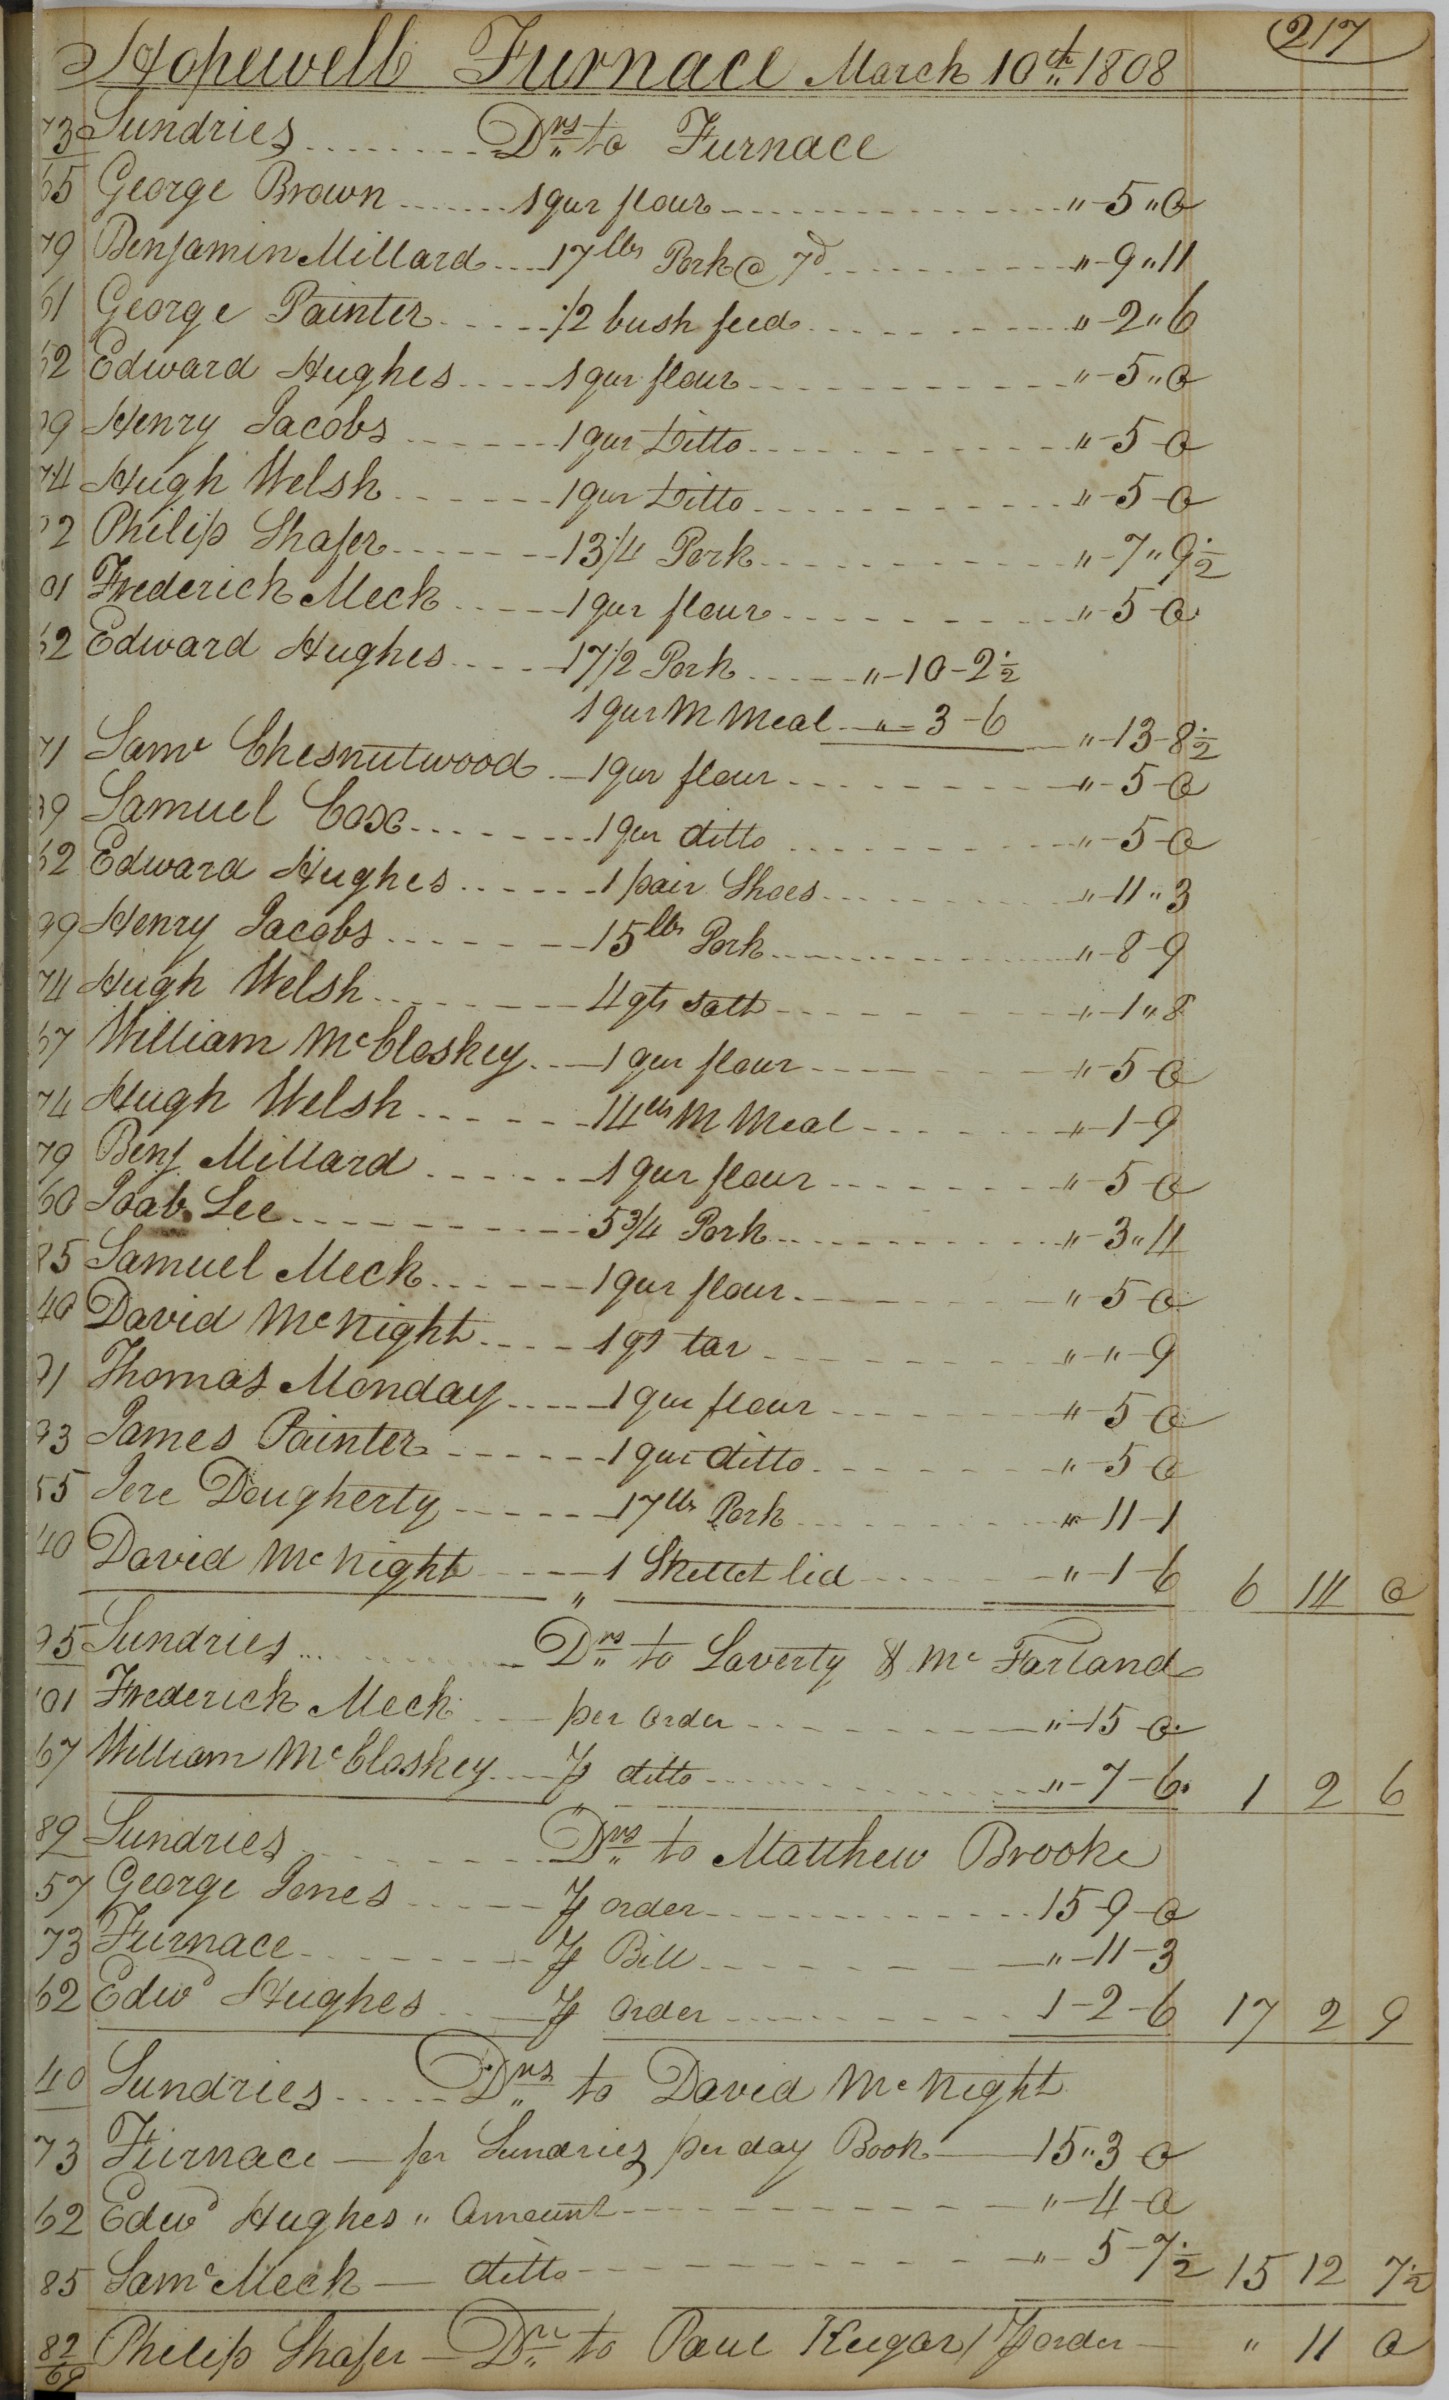 217
Hopewell Furnace March 10th 1808
73 Sundries Drs to Furnace
65 George Brown 1 qur flour " 5 " 0
79 Benjamin Millard 17 lbs Pork @ 7d " 9 " 11
61 George Painter 1/2 bush feed " 2 " 6
62 Edward Hughes 1 qur flour " 5 " 0
99 Henry Jacobs 1 qur Ditto " 5 - 0
74 Hugh Welsh 1 qur Ditto " 5 - 0
2 Philip Shafer 13 1/4 Pork " 7 " 9 1/2
01 Frederick Meck 1 qur flour " 5 - 0
62 Edward Hughes 17 1/2 Pork " 10 - 2 1/2
1 qur M Meal " 3 - 6 " 13 - 8 1/2
71 Saml Chesnutwood 1 qur flour " 5 - 0
99 Samuel Cox 1 qur ditto " 5 - 0
62 Edward Hughes 1 pair Shoes " 11 " 3
99 Henry Jacobs 15 lbs Pork " 8 - 9
74 Hugh Welsh 4 qts salt " 1 " 8
67 William McCloskey 1 qur flour " 5 - 0
74 Hugh Welsh 14 lbs M Meal " 1 - 9
79 Benj. Millard 1 qur flour " 5 - 0
60 Joab Lee 5 3/4 Pork " 3 " 4
85 Samuel Meck 1 qur flour " 5 - 0
40 David McNight 1 qt tar " " 9
91 Thomas Monday 1 qur flour " 5 - 0
93 James Painter 1 qur ditto " 5 - 0
55 Jere Dougherty 17 lbs Pork " 11 - 1
40 David McNight 1 Skellet lid " 1 - 6 6 14 0
95 Sundries Drs to Laverty & McFarland
01 Frederick Meck per order " 15 - 0
67 William McCloskey ⅌ ditto " 7 - 6 1 2 6
89 Sundries Drs to Matthew Brooke
57 George Jones ⅌ order 15 - 9 - 0
73 Furnace ⅌ Bill " 11 - 3
62 Edwd Hughes ⅌ order 1 - 2 - 6 17 2 9
40 Sundries Drs to David McNight
73 Furnace for Sundries per day Book 15 " 3 0
62 Edwd Hughes " Amount " 4 - 0
85 Saml Meck ditto " 5 - 7 1/2 15 12 7 1/2
82/69 Philip Shafer Dr to Paul Kugar ⅌ order " 11 0